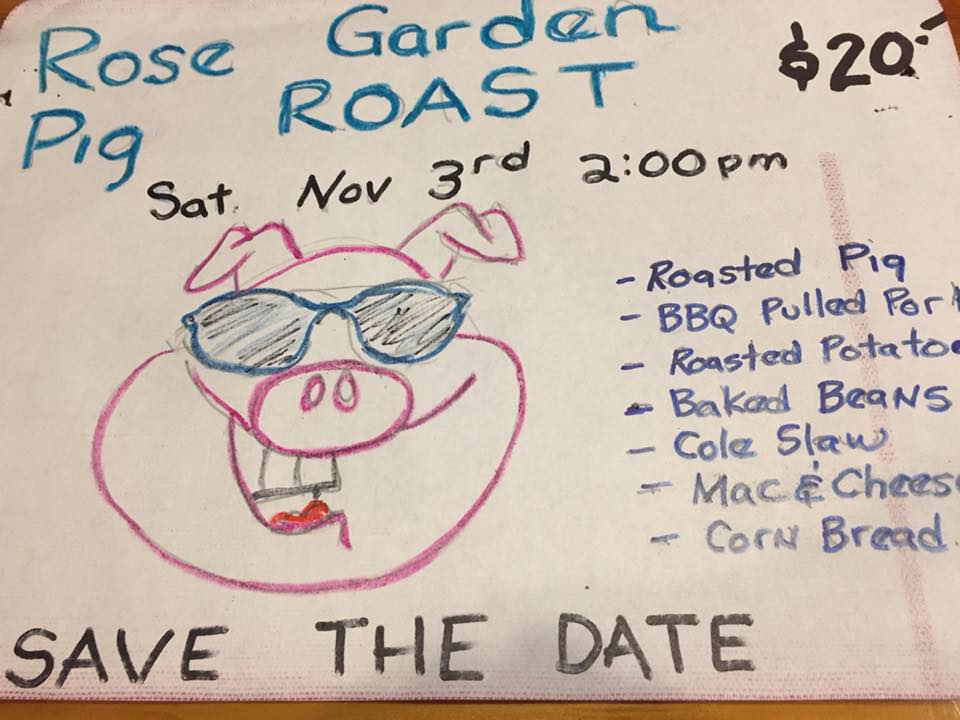 Rose Garden
Pig ROAST
$20.-
Sat. Nov 3rd 2:00pm
- Roasted Pig
- BBQ Pulled Pork
- Roasted Potatoe
- Baked Beans
- Cole Slaw
- Mac & Cheese
- Corn Bread
SAVE THE DATE